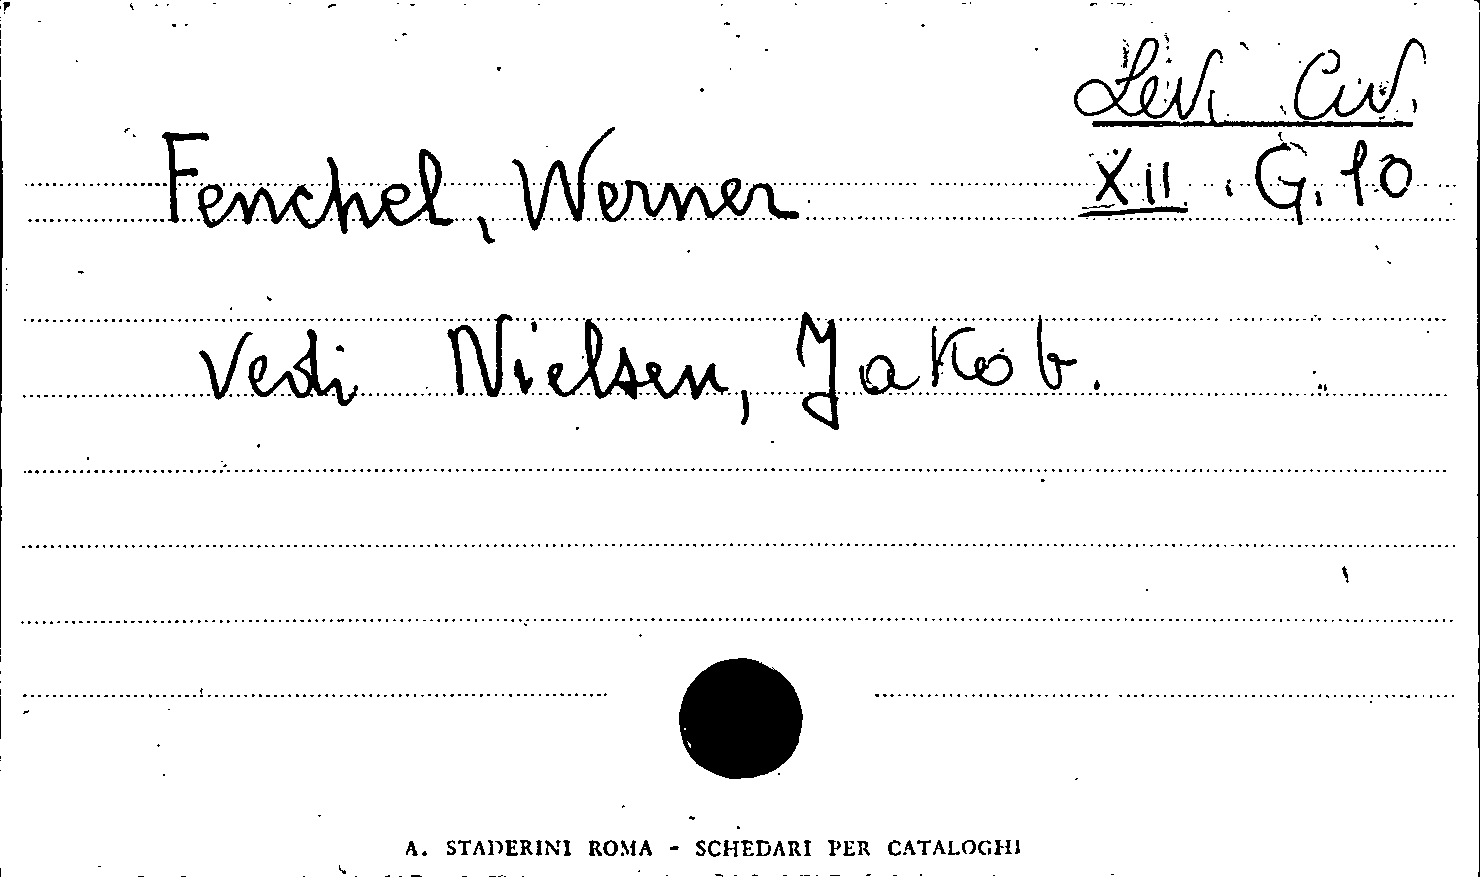 Levi Civ.
Fenchel, Werner
XII. G. 10
Vedi Nielsen, Jakob.
A. STADERINI ROMA - SCHEDARI PER CATALOGHI